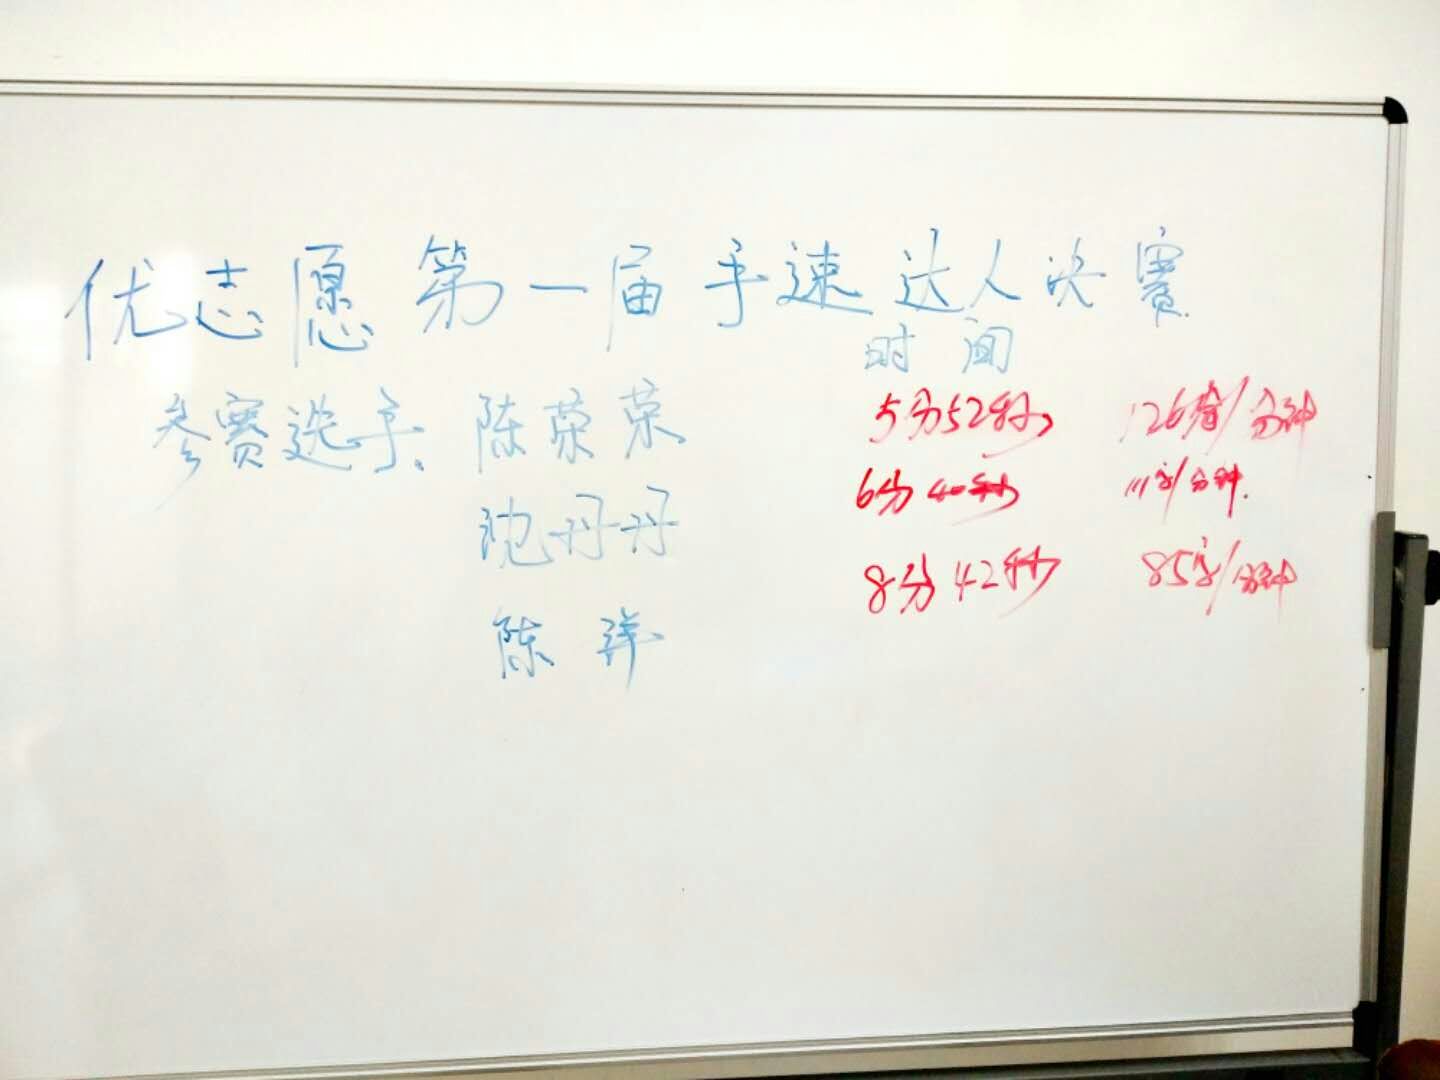 优志愿第一届手速达人决赛
时间
参赛选手、陈荣荣 5分52秒 126字/分钟
沈丹丹 6分40秒 111字/分钟.
陈洋 8分42秒 85字/分钟